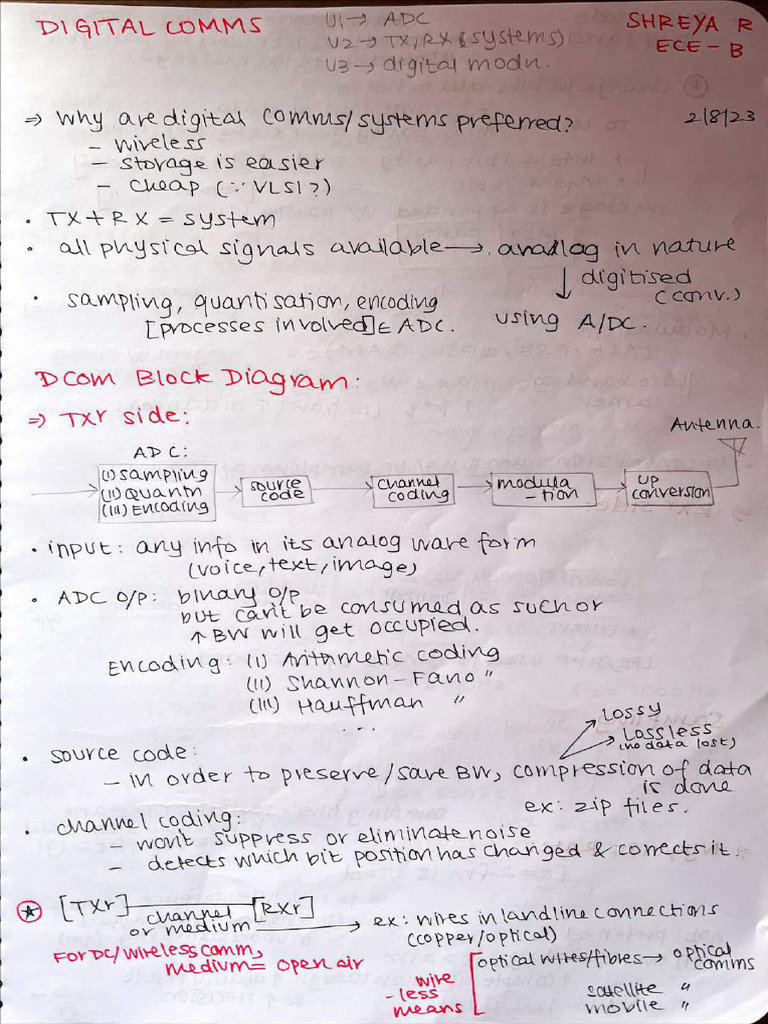 DIGITAL COMMS
U1 → ADC
U2 → TX, RX (systems)
U3 → digital modn.
SHREYA R
ECE - B
2/8/23
⇒ Why are digital comms/systems preferred?
- wireless
- storage is easier
- cheap (∵ VLSI?)
• TX + RX = system
• all physical signals available → analog in nature
↓ digitised
(conv.)
using A/DC.
• sampling, quantisation, encoding
[processes involved] ∈ ADC.
DCOM BLOCK DIAGRAM:
⇒ TXr side:
Antenna.
ADC:
(i) Sampling
(ii) Quantn
(iii) Encoding
source
code
channel
coding
modula
-tion
UP
conversion
• input: any info in its analog wave form
(voice, text, image)
• ADC O/P: binary O/P
but can't be consumed as such or
↑ BW will get occupied.
Encoding: (i) Arithmetic coding
(ii) Shannon-Fano "
(iii) Hauffman "
...
Lossy
Lossless
(no data lost)
• source code:
- in order to preserve/save BW, compression of data
is done
ex: zip files.
• channel coding:
- won't suppress or eliminate noise
- detects which bit position has changed & corrects it.
[TXr] [RXr]
channel
or medium → ex: wires in landline connections
(copper/optical)
For DC/wireless comm,
medium = open air
wire
-less
means
optical wires/fibres → optical
comms
satellite "
mobile "